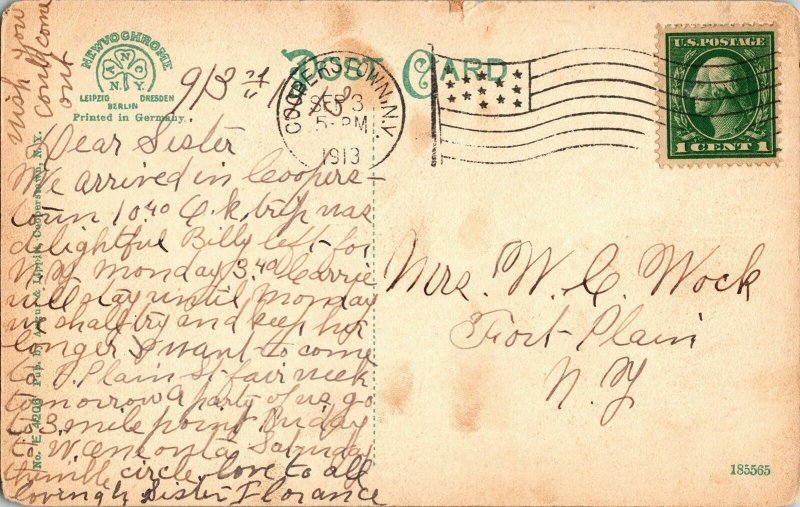 wish you
could come
out
NEWVOCHROME
A N C
N.Y.
LEIPZIG DRESDEN
BERLIN
Printed in Germany.
POST CARD
COOPERSTOWN, N.Y.
SEP 3
5-PM
1913
U.S. POSTAGE
1 CENT 1
9/3
Dear Sister
We arrived in Coopers-
town 10 40 O.K. trip was
delightful Billy left for
N.Y. Monday 3.40 Carrie
will stay until Monday
we shall try and keep her
longer I want to come
to F. Plain St. fair week
tomorrow a party of us go
to 3 mile point Friday
to W. Oneonta Saturday
thimble circle love to all
lovingly Sister Florance
Mrs. W. C. Wock
Fort Plain
N. Y
No. E 4206 Pub. by Lippitt, Cooperstown, N. Y.
185565